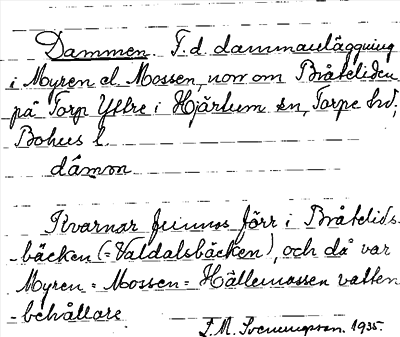 Dammen. F.d. dammanläggning
i Myren el. Mossen, norr om Bråteliden
på Torp Yttre i Hjärtum sn, Torpe hd,
Bohus l.
dámon
Kvarnar funnos förr i Bråtelids-
-bäcken (=Valdalsbäcken), och då var
Myren = Mossen = Hällemossen vatten
-behållare
L.M. Svenungsson. 1935.